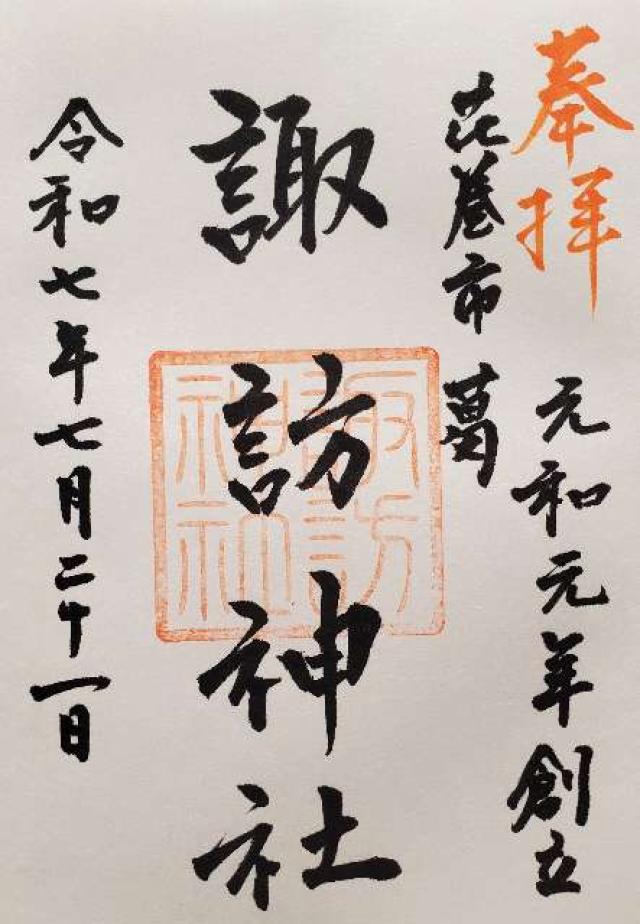 奉拝
元和元年創立
花巻市 葛
諏訪神社
諏訪
神社
令和七年七月二十一日